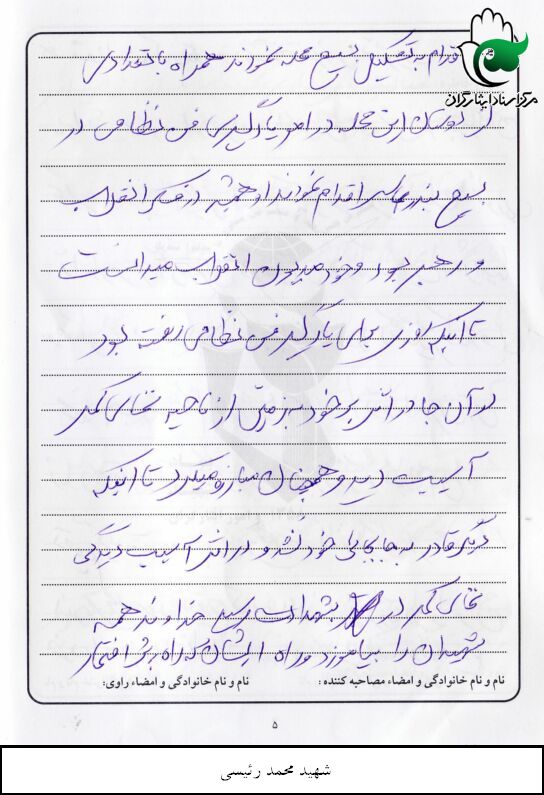 مرکز اسناد ایثارگران
اقدام به تشکیل بسیج محله نمودند همراه با تعدادی
از دوستان این محله در امر یادگیری فن نظامی در
بسیج بندر اقدام نمودند او همیشه در فکر انقلاب
و رهبر بود و خود مدیون انقلاب میدانست
تا اینکه روزی برای یادگیری فن نظامی رفته بود
در آن جا در اثر برخورد به زمین از ناحیه نخاع کمر
آسیب دید و همچنان مبارزه میکرد تا اینکه
دیگر قادر به جابجایی خود نشد و در اثر آسیب دیدگی
نخاع کمر در بشهادت رسید خداوند همه
شهیدان را بیامرزد و راه ایشان که راه پر افتخار
نام و نام خانوادگی و امضاء مصاحبه کننده : نام و نام خانوادگی و امضاء راوی:
۵
شهید محمد رئیسی